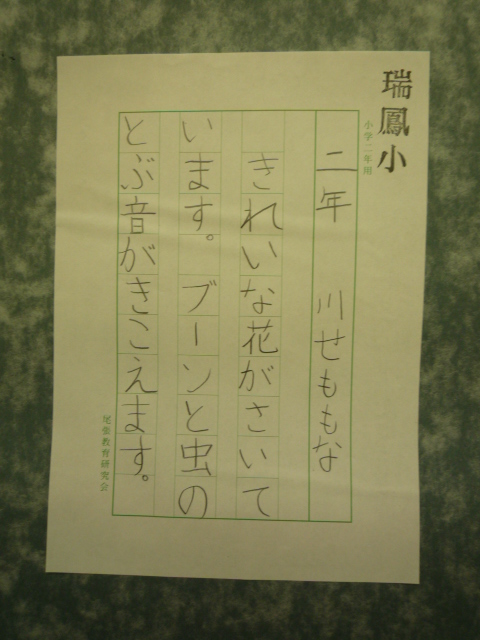 瑞鳳小
小学二年用
二年 川せももな
きれいな花がさいて
います。ブーンと虫の
とぶ音がきこえます。
尾張教育研究会